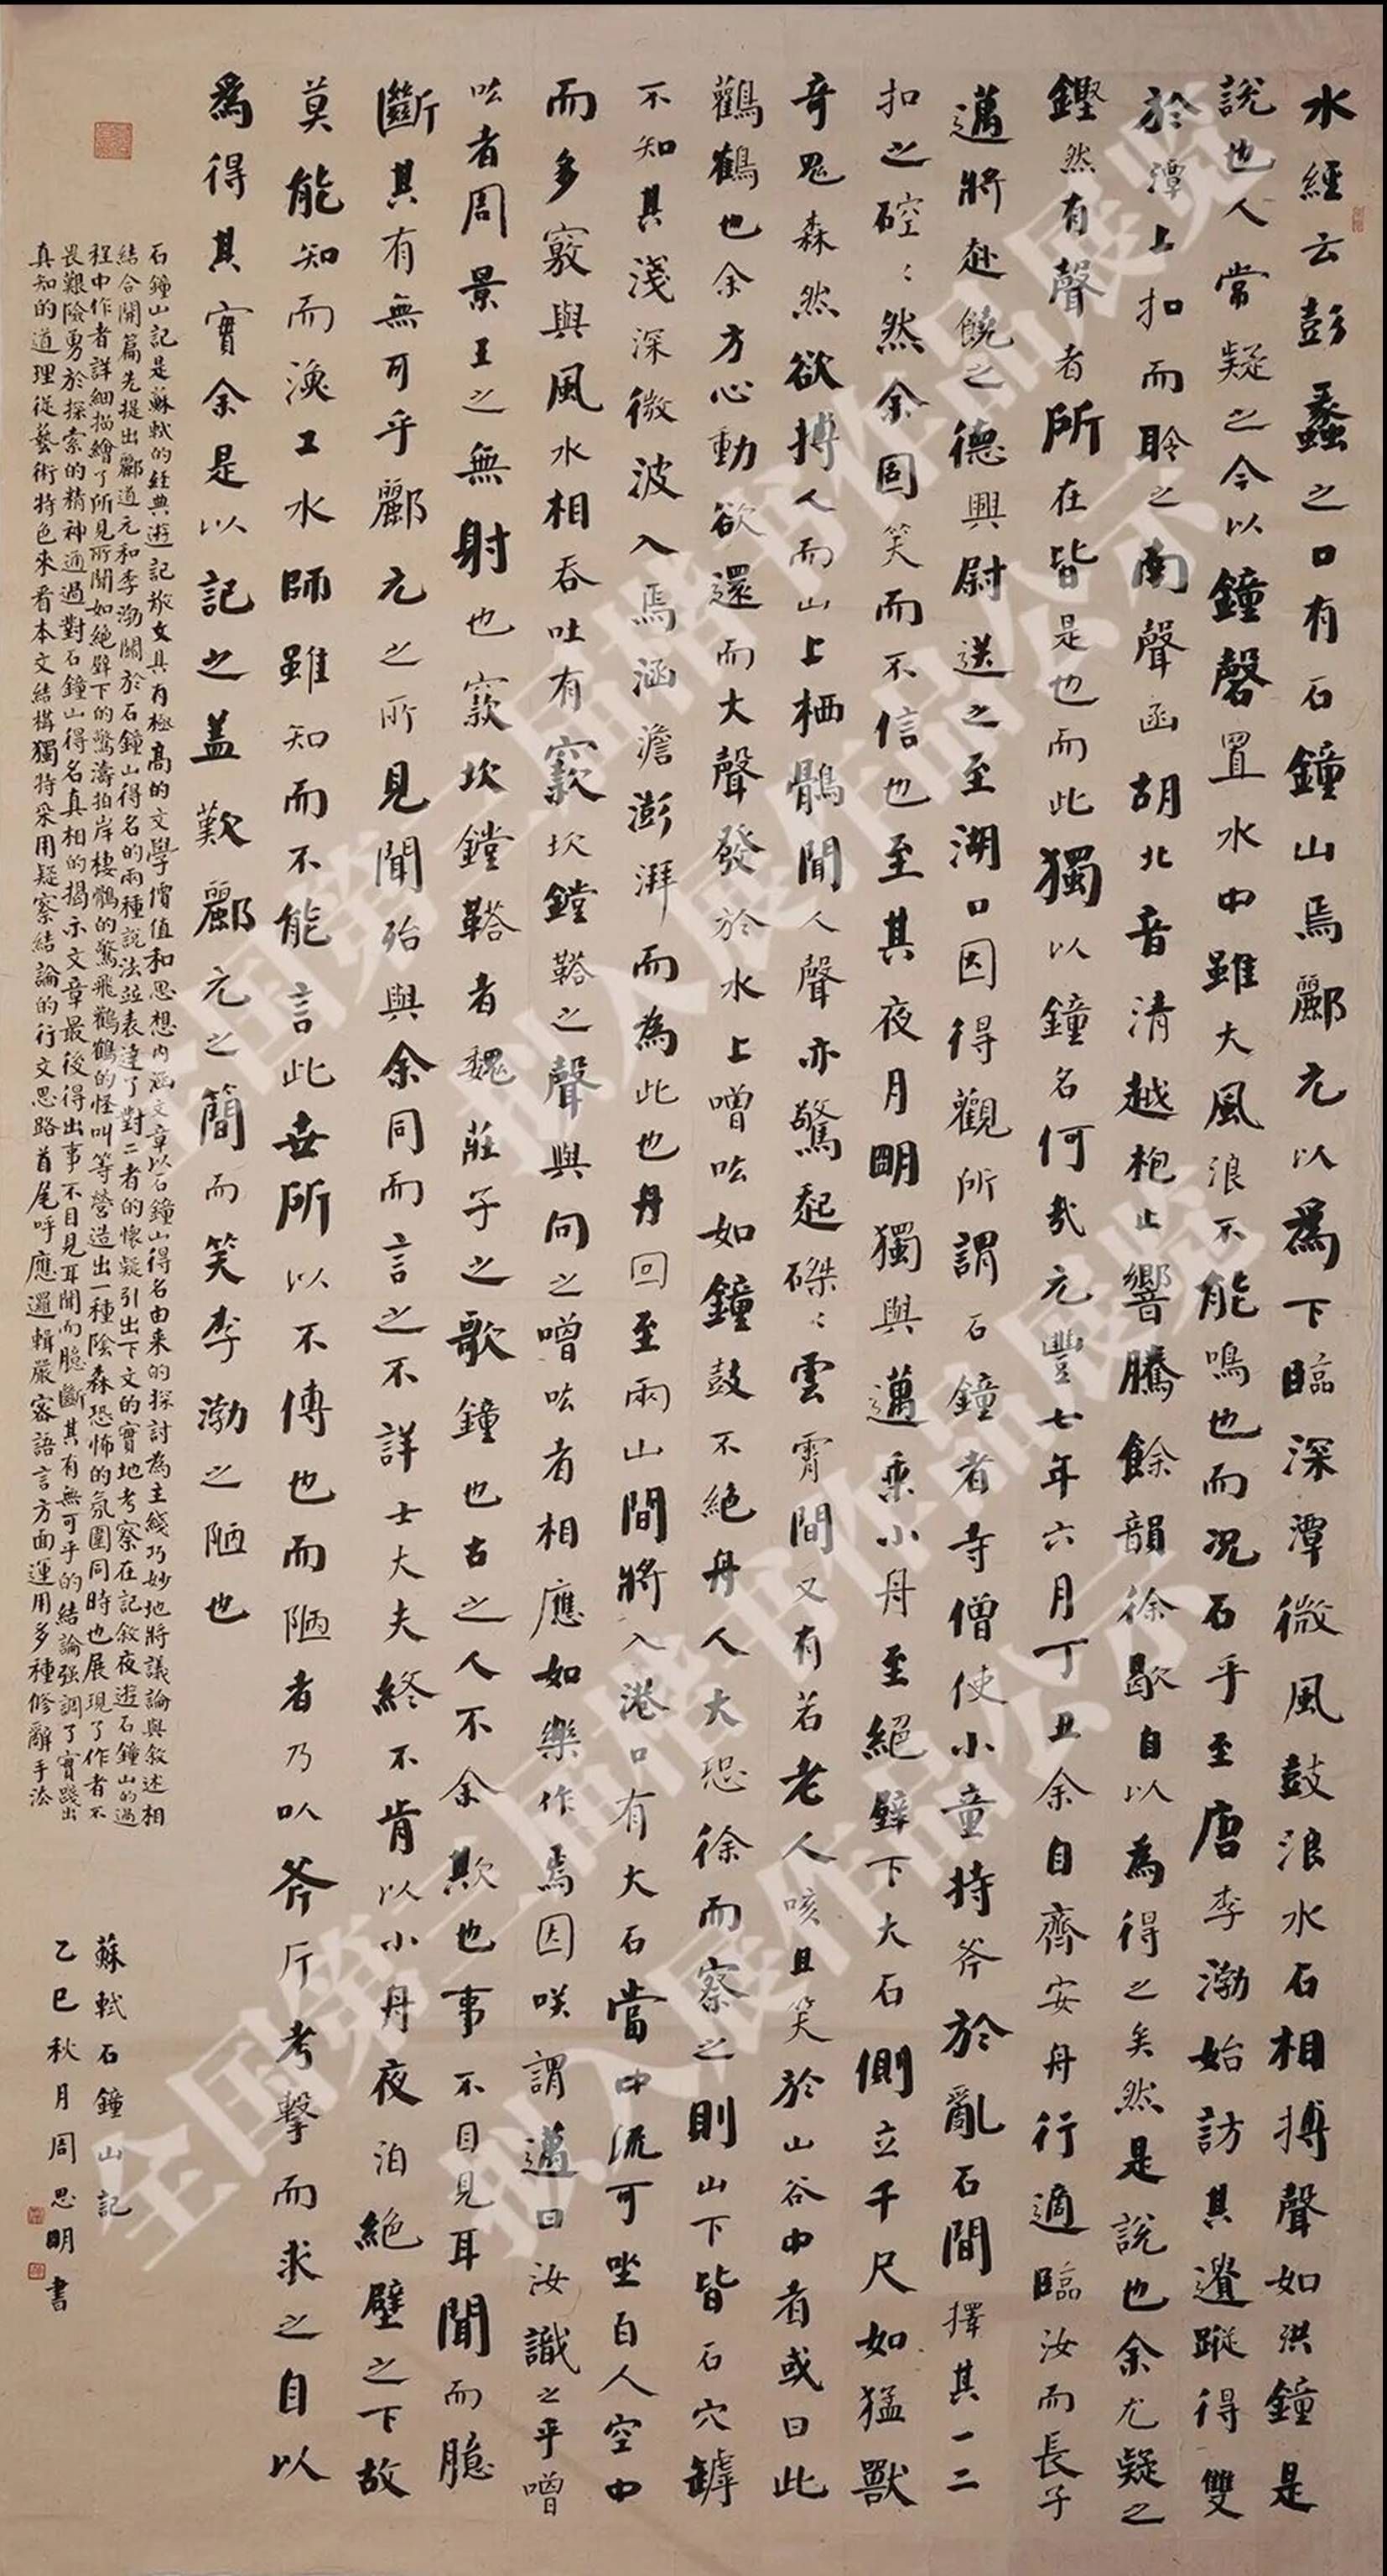 水經云彭蠡之口有石鐘山焉酈元以為下臨深潭微風鼓浪水石相搏聲如洪鐘是
說也人常疑之今以鐘磬置水中雖大風浪不能鳴也而況石乎至唐李渤始訪其遺蹤得雙
於潭上扣而聆之南聲函胡北音清越枹止響騰餘韻徐歇自以為得之矣然是說也余尤疑之
鏗然有聲者所在皆是也而此獨以鐘名何哉元豐七年六月丁丑余自齊安舟行適臨汝而長子
邁將赴饒之德興尉送之至湖口因得觀所謂石鐘者寺僧使小童持斧於亂石間擇其一二
扣之硿〻然余固笑而不信也至其夜月明獨與邁乘小舟至絕壁下大石側立千尺如猛獸
奇鬼森然欲搏人而山上栖鶻聞人聲亦驚起磔〻雲霄間又有若老人咳且笑於山谷中者或曰此
鸛鶴也余方心動欲還而大聲發於水上噌吰如鐘鼓不絕舟人大恐徐而察之則山下皆石穴罅
不知其淺深微波入焉涵澹澎湃而為此也舟回至兩山間將入港口有大石當中流可坐百人空中
而多竅與風水相吞吐有窾坎鏜鞳之聲與向之噌吰者相應如樂作焉因咲謂邁曰汝識之乎噌
吰者周景王之無射也窾坎鏜鞳者魏莊子之歌鐘也古之人不余欺也事不目見耳聞而臆
斷其有無可乎酈元之所見聞殆與余同而言之不詳士大夫終不肯以小舟夜泊絕壁之下故
莫能知而漁工水師雖知而不能言此世所以不傳也而陋者乃以斧斤考擊而求之自以
為得其實余是以記之盖歎酈元之簡而笑李渤之陋也
石鐘山記是蘇軾的經典遊記散文具有極高的文學價值和思想內涵文章以石鐘山得名由來的探討為主綫巧妙地將議論與敘述相
結合開篇先提出酈道元和李渤關於石鐘山得名的兩種說法並表達了對二者的懷疑引出下文的實地考察在記敘夜遊石鐘山的過
程中作者詳細描繪了所見所聞如絕壁下的驚濤拍岸棲鶻的驚飛鸛鶴的怪叫等營造出一種陰森恐怖的氛圍同時也展現了作者不
畏艱險勇於探索的精神通過對石鐘山得名真相的揭示文章最後得出事不目見耳聞而臆斷其有無可乎的結論強調了實踐出
真知的道理從藝術特色來看本文結構獨特采用疑察結論的行文思路首尾呼應邏輯嚴密語言方面運用多種修辭手法
蘇軾石鐘山記
乙巳秋月周思明書
全国第三届楷书作品展览
拟入展作品公示
全国第三届楷书作品展览
拟入展作品公示